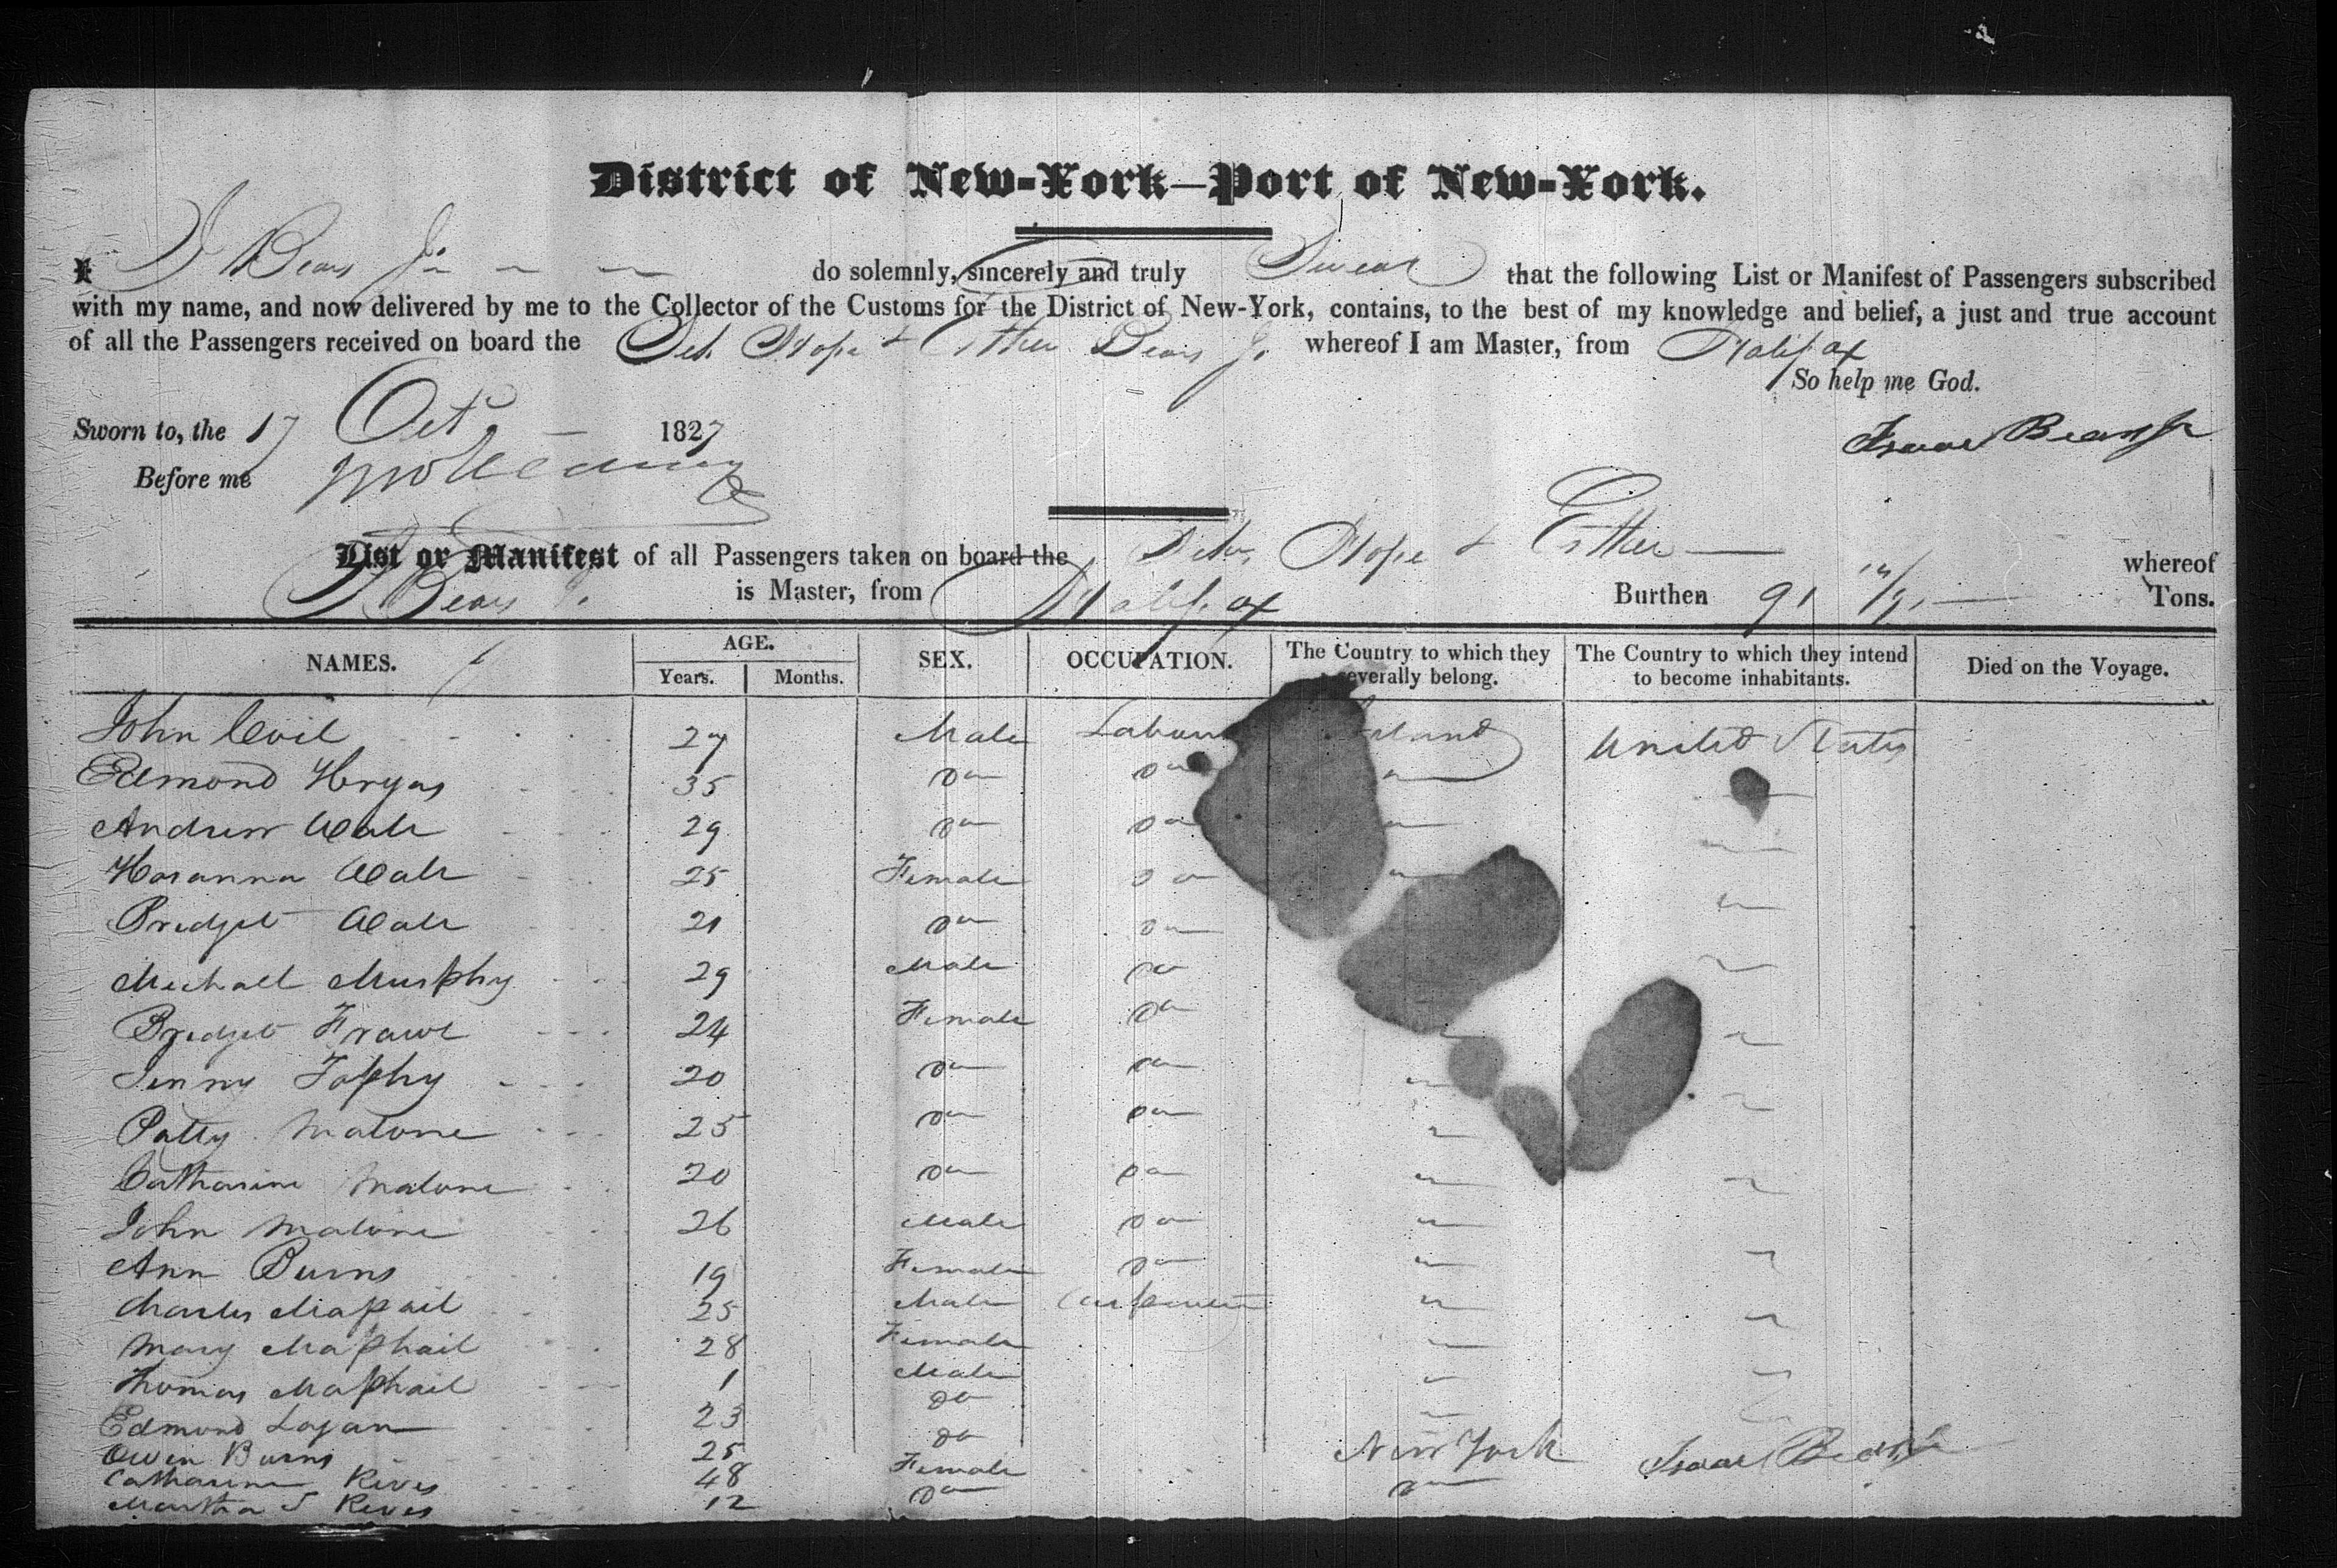 District of New-York—Port of New-York.
I I Bears Jr do solemnly, sincerely and truly Swear that the following List or Manifest of Passengers subscribed
with my name, and now delivered by me to the Collector of the Customs for the District of New-York, contains, to the best of my knowledge and belief, a just and true account
of all the Passengers received on board the Sch Hope & Esther Bears Jr whereof I am Master, from Halifax
So help me God.
Sworn to, the 17 Oct 1827
Isaac Bears Jr
Before me
List or Manifest of all Passengers taken on board the Schr Hope & Esther whereof
I Bears Jr is Master, from Halifax Burthen 91 Tons.
NAMES. AGE. Years. Months. SEX. OCCUPATION. The Country to which they severally belong. The Country to which they intend to become inhabitants. Died on the Voyage.
John 27 Male Labour Ireland United States
Edmond 35 do do
Andrew 29 do do
Hosanna 25 Female do
Bridget 21 do do
Michall Murphy 29 Male do
Bridget 24 Female do
Jenny 20 do do
Patty Malone 25 do do
Catharine Malone 20 do do
John Malone 26 Male do
Ann Burns 19 Female do
Charles Mapail 25 Male Carpenter
Mary Maphail 28 Female
Thomas Maphail 1 Male
Edmond Logan 23 do
Owen Burns 25 do New York Isaac Bears Jr
Catharine Rives 48 Female do
Martha S Rives 12 do